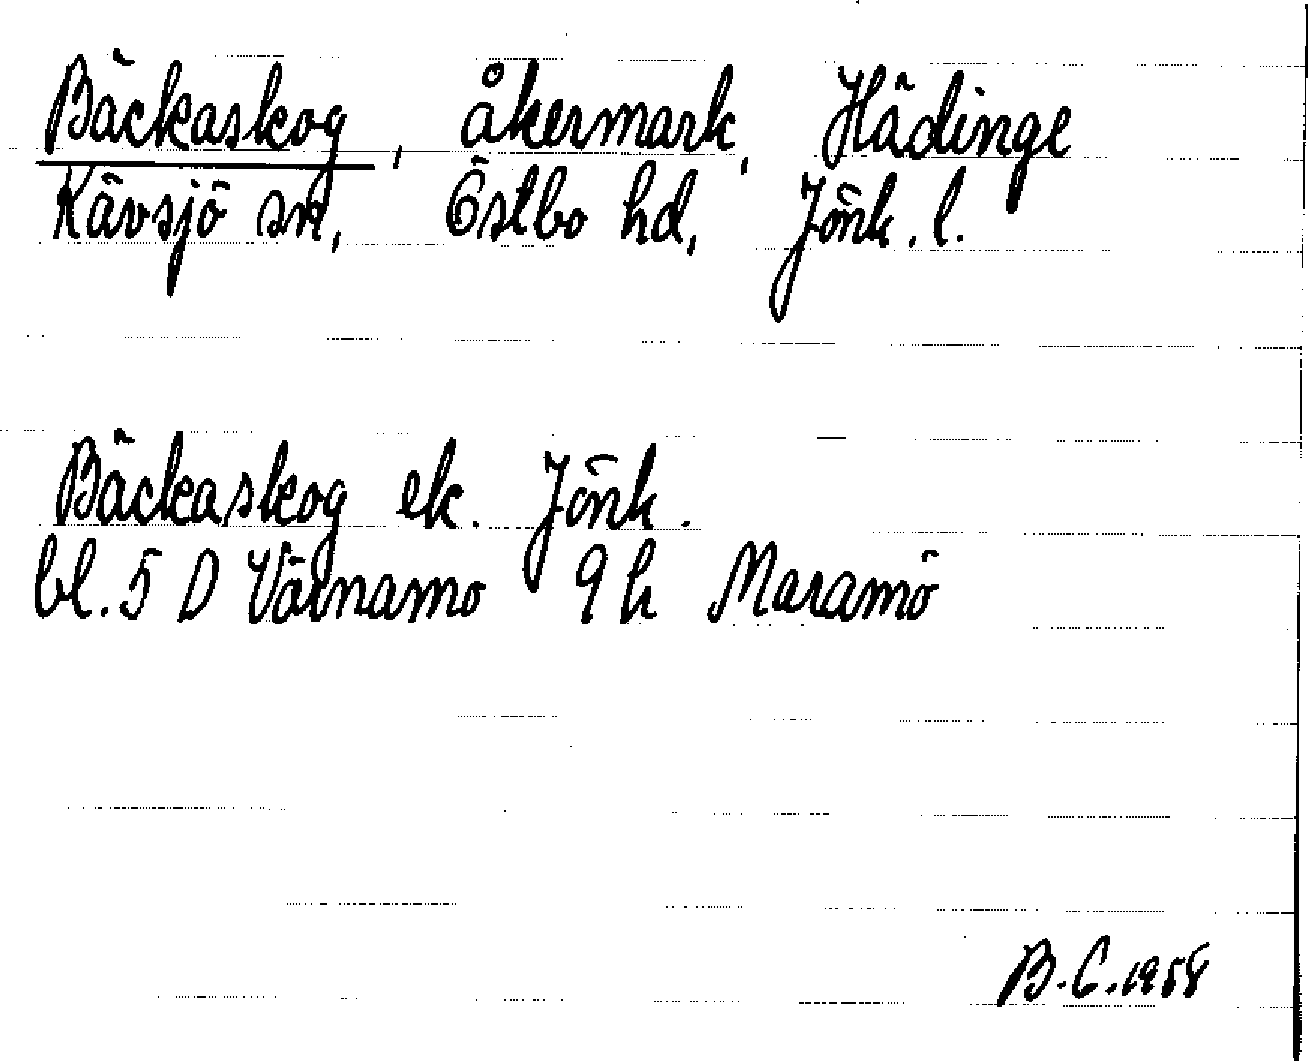 Bäckaskog, åkermark, Hädinge
Kävsjö sn, Östbo hd, Jönk. l.
Bäckaskog ek. Jönk.
bl. 5 D Värnamo 9 h Maramö
B.C. 1958